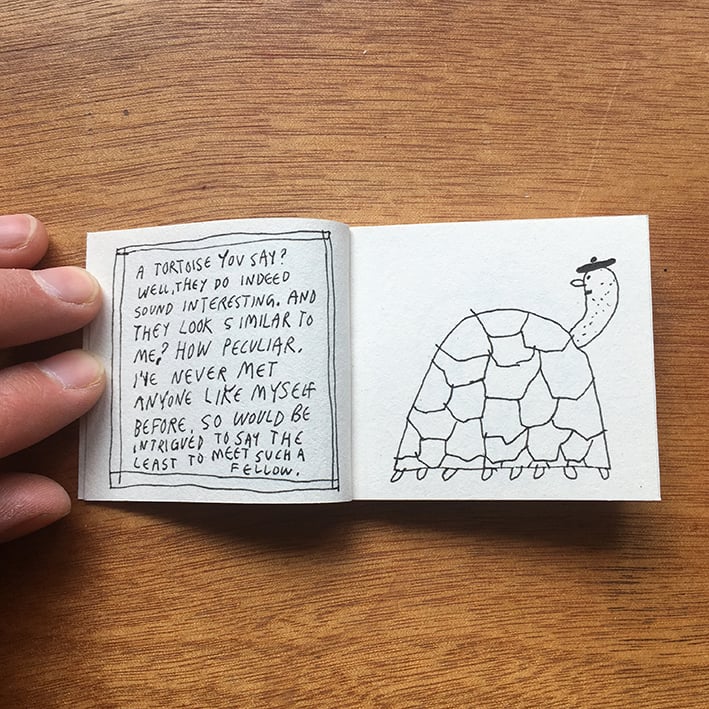 A TORTOISE YOU SAY?
WELL, THEY DO INDEED
SOUND INTERESTING. AND
THEY LOOK SIMILAR TO
ME? HOW PECULIAR.
I'VE NEVER MET
ANYONE LIKE MYSELF
BEFORE, SO WOULD BE
INTRIGUED TO SAY THE
LEAST TO MEET SUCH A
FELLOW.